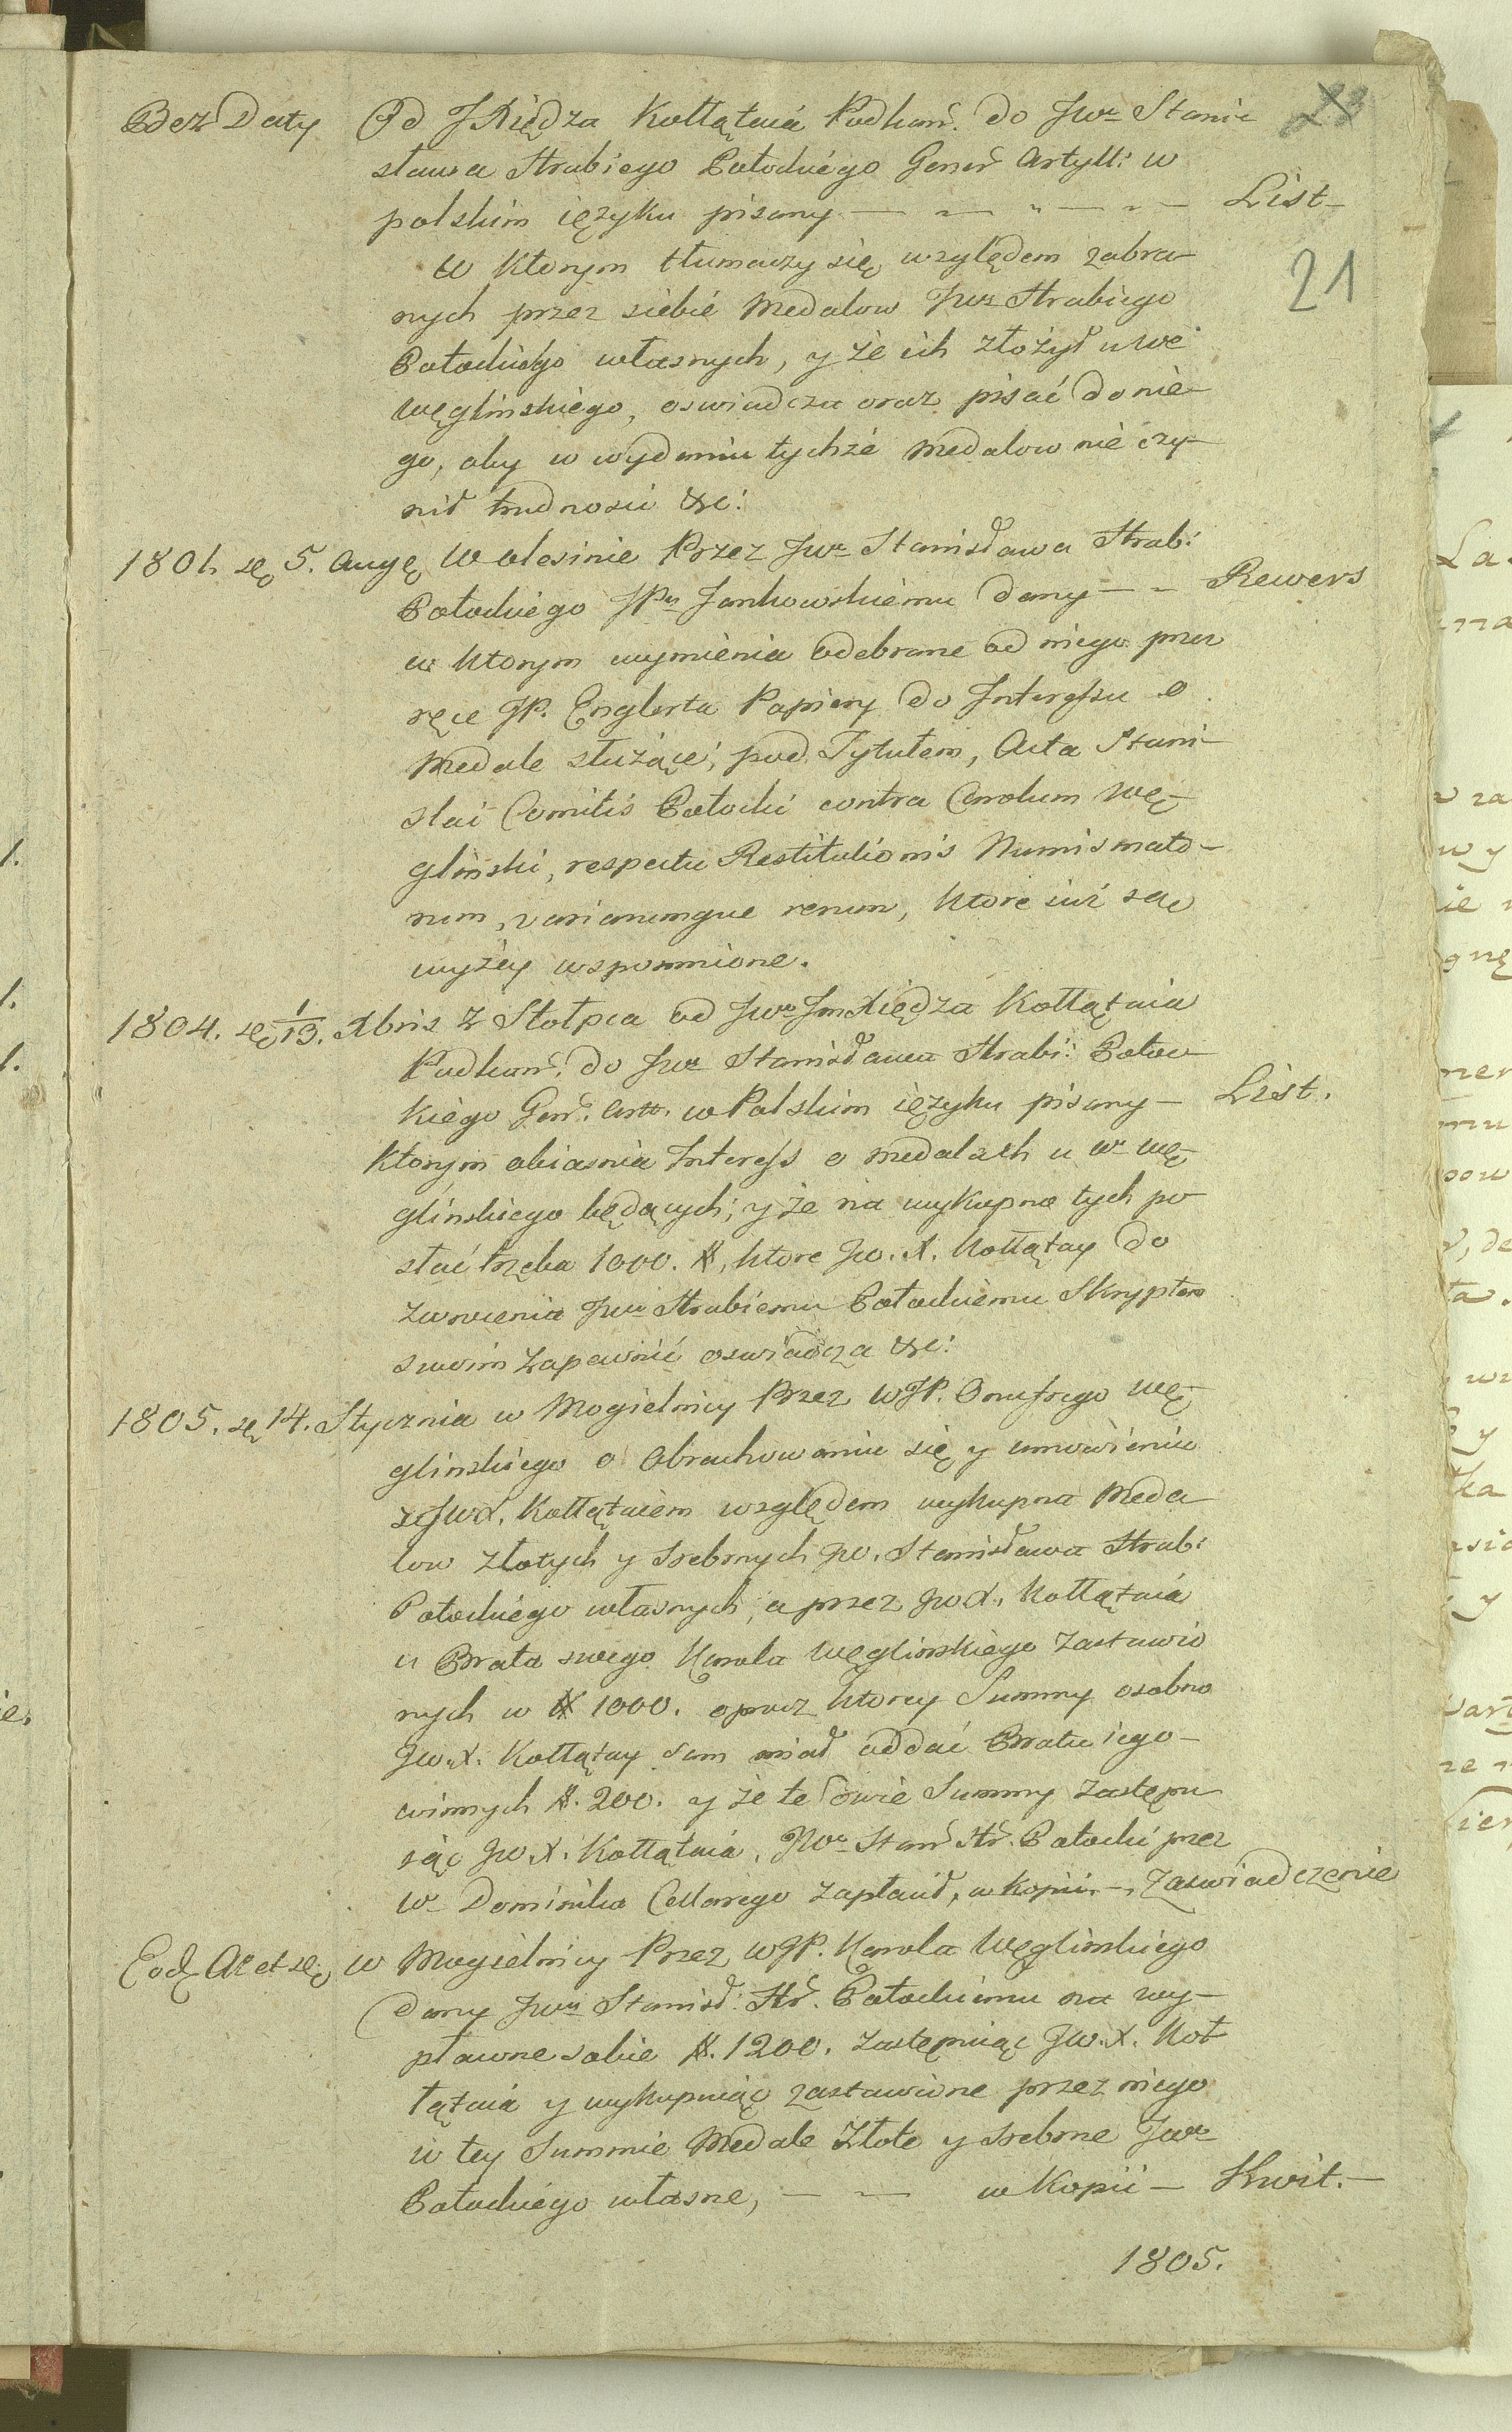 23
Bez Daty Od JXiędza Kołłątaia Podkan. do JWo Stanis
sława Hrabiego Potockiego Gener Artyll: w
polskim ięzyku pisany — — " — " — List —
21
w ktorym tłumaczy się względem zabra-
nych przez siebie Medalow JWo Hrabiego
Potockiego własnych, y że ich złożył u Wo
Węglinskiego, oswiadcza oraz pisać do nie-
go, aby w wydaniu tychże Medalow nie czy-
nił trudnosci &c:
1801. 5. Aug w Olesinie Przez JWo Stanisława Hrab:
Potockiego JPu Jankowskiemu dany — - Rewers
w ktorym wymienia odebrane od niego przez
ręce JP. Englerta Papiery do Interessu o
Medale służące, pod Tytułem, Acta Stani-
slai Comitis Potocki contra Carolum Wę-
glinski, respectu Restitutionis Numismato-
rum, variarumque rerum, ktore iuż są
wyżey wspomnione.
1804. 1/13. Xbris z Stołpca od JWo JmXiędza Kołłątaia
Podkan. do JWo Stanisława Hrabi: Potoc-
kiego Gen. Artt. w Polskim ięzyku pisany — List.
ktorym obiasnia Interess o medalach u Wo Wę-
glinskiego będących; y że na wykupno tych po-
słać trzeba 1000. #, ktore JW. X. Kołłątay do
zwrocenia JWu Hrabiemu Potockiemu Skryptem
swoim zapewnić oswiadcza &c:
1805. 14. Stycznia w Mogielnicy Przez WJP. Onufrego Wę-
glinskiego o obrachowaniu się y umowieniu
z JWX. Kołłątaiem względem wykupna Meda-
low złotych y srebrnych JW. Stanisława Hrab:
Potockiego własnych, a przez JWX. Kołłątaia
u Brata swego Karola Węglinskiego zastawio
nych w # 1000. oprocz ktorey Summy osobno
JW.X. Kołłątay sam miał oddać Bratu iego —
winnych #. 200. y że te dwie Summy zastępu
iąc JW.X. Kołłątaia, JWo Stan Hr. Potocki przez
Wo Dominika Cellarego zapłacił, w kopii — Zaswiadczenie
Eod. Ao et w Mogielnicy Przez WJP. Karola Węglinskiego
dany JWu Stanisł: Hr. Potockiemu na wy-
płacone sobie #. 1200. zastępuiąc JW.X. Koł-
łątaia y wykupuiąc zastawione przez niego
w tey Summie Medale Złote y srebrne JWo
Potockiego własne, — — w Kopii — Kwit. —
1805.